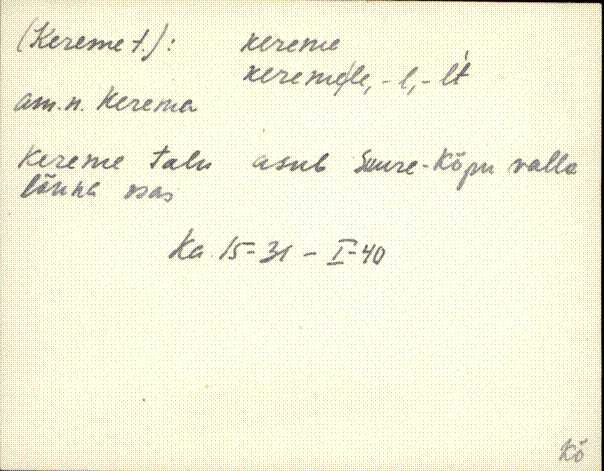 (Kereme t.): kereme
keremele, -l, -lt
am.n. Kerema
Kereme talu asub Suure-Kõpu valla
lõuna osas
Ka. 15-31 - I-40
Kõ